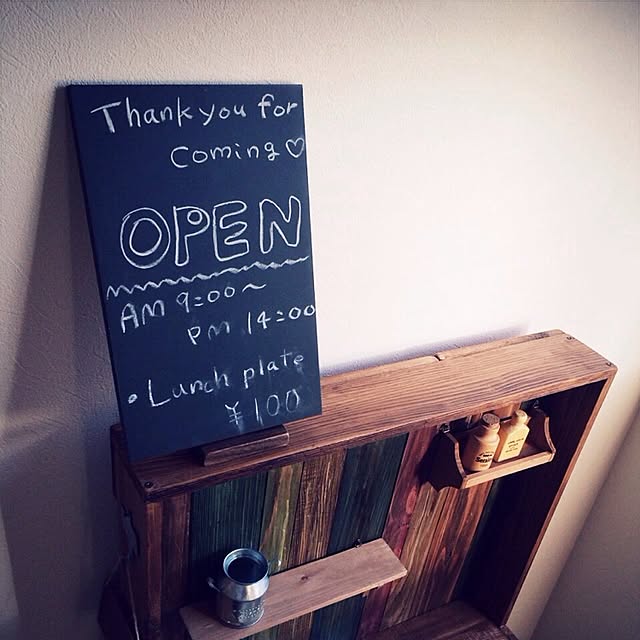 Thank you for
Coming♡
OPEN
AM 9:00～
PM 14:00
• Lunch plate
¥100